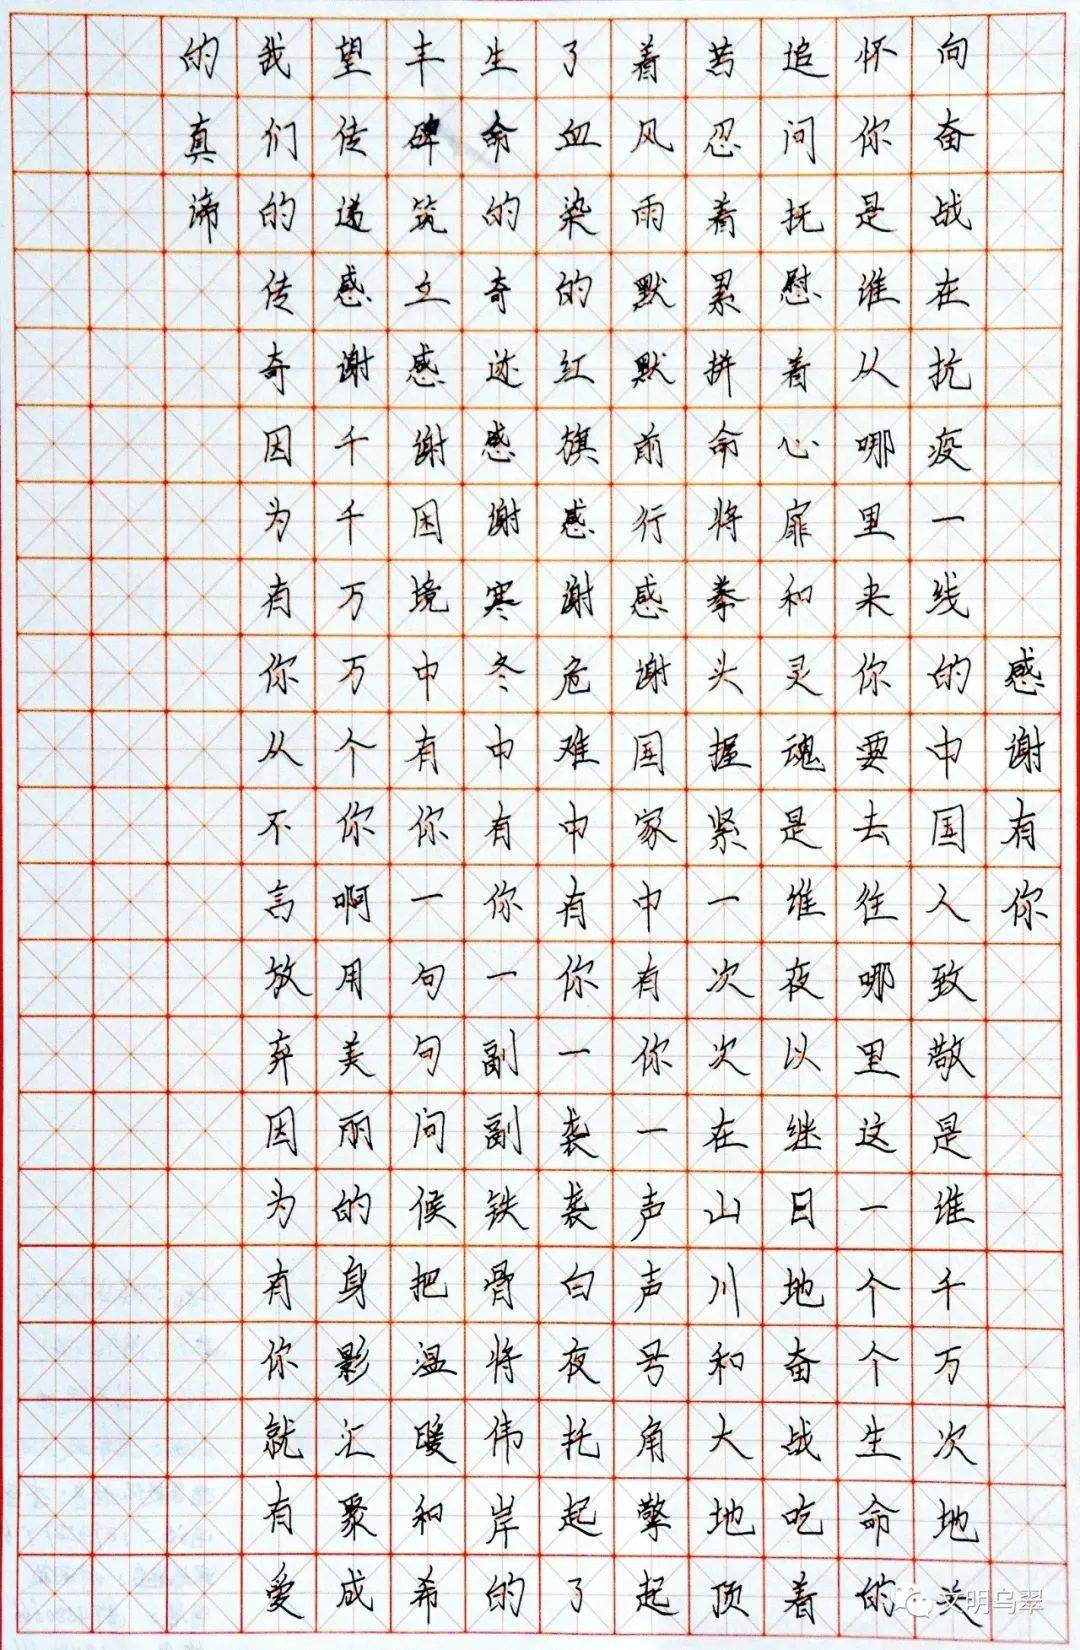 感谢有你
向奋战在抗疫一线的中国人致敬是谁千万次地关
怀你是谁从哪里来你要去往哪里这一个个生命的
追问抚慰着心扉和灵魂是谁夜以继日地奋战吃着
苦忍着累拼命将拳头握紧一次次在山川和大地顶
着风雨默默前行感谢国家中有你一声声号角擎起
了血染的红旗感谢危难中有你一袭袭白夜托起了
生命的奇迹感谢寒冬中有你一副副铁骨将伟岸的
丰碑筑立感谢困境中有你一句句问候把温暖和希
望传递感谢千千万万个你啊用美丽的身影汇聚成
我们的传奇因为有你从不言放弃因为有你就有爱
的真谛
文明乌翠